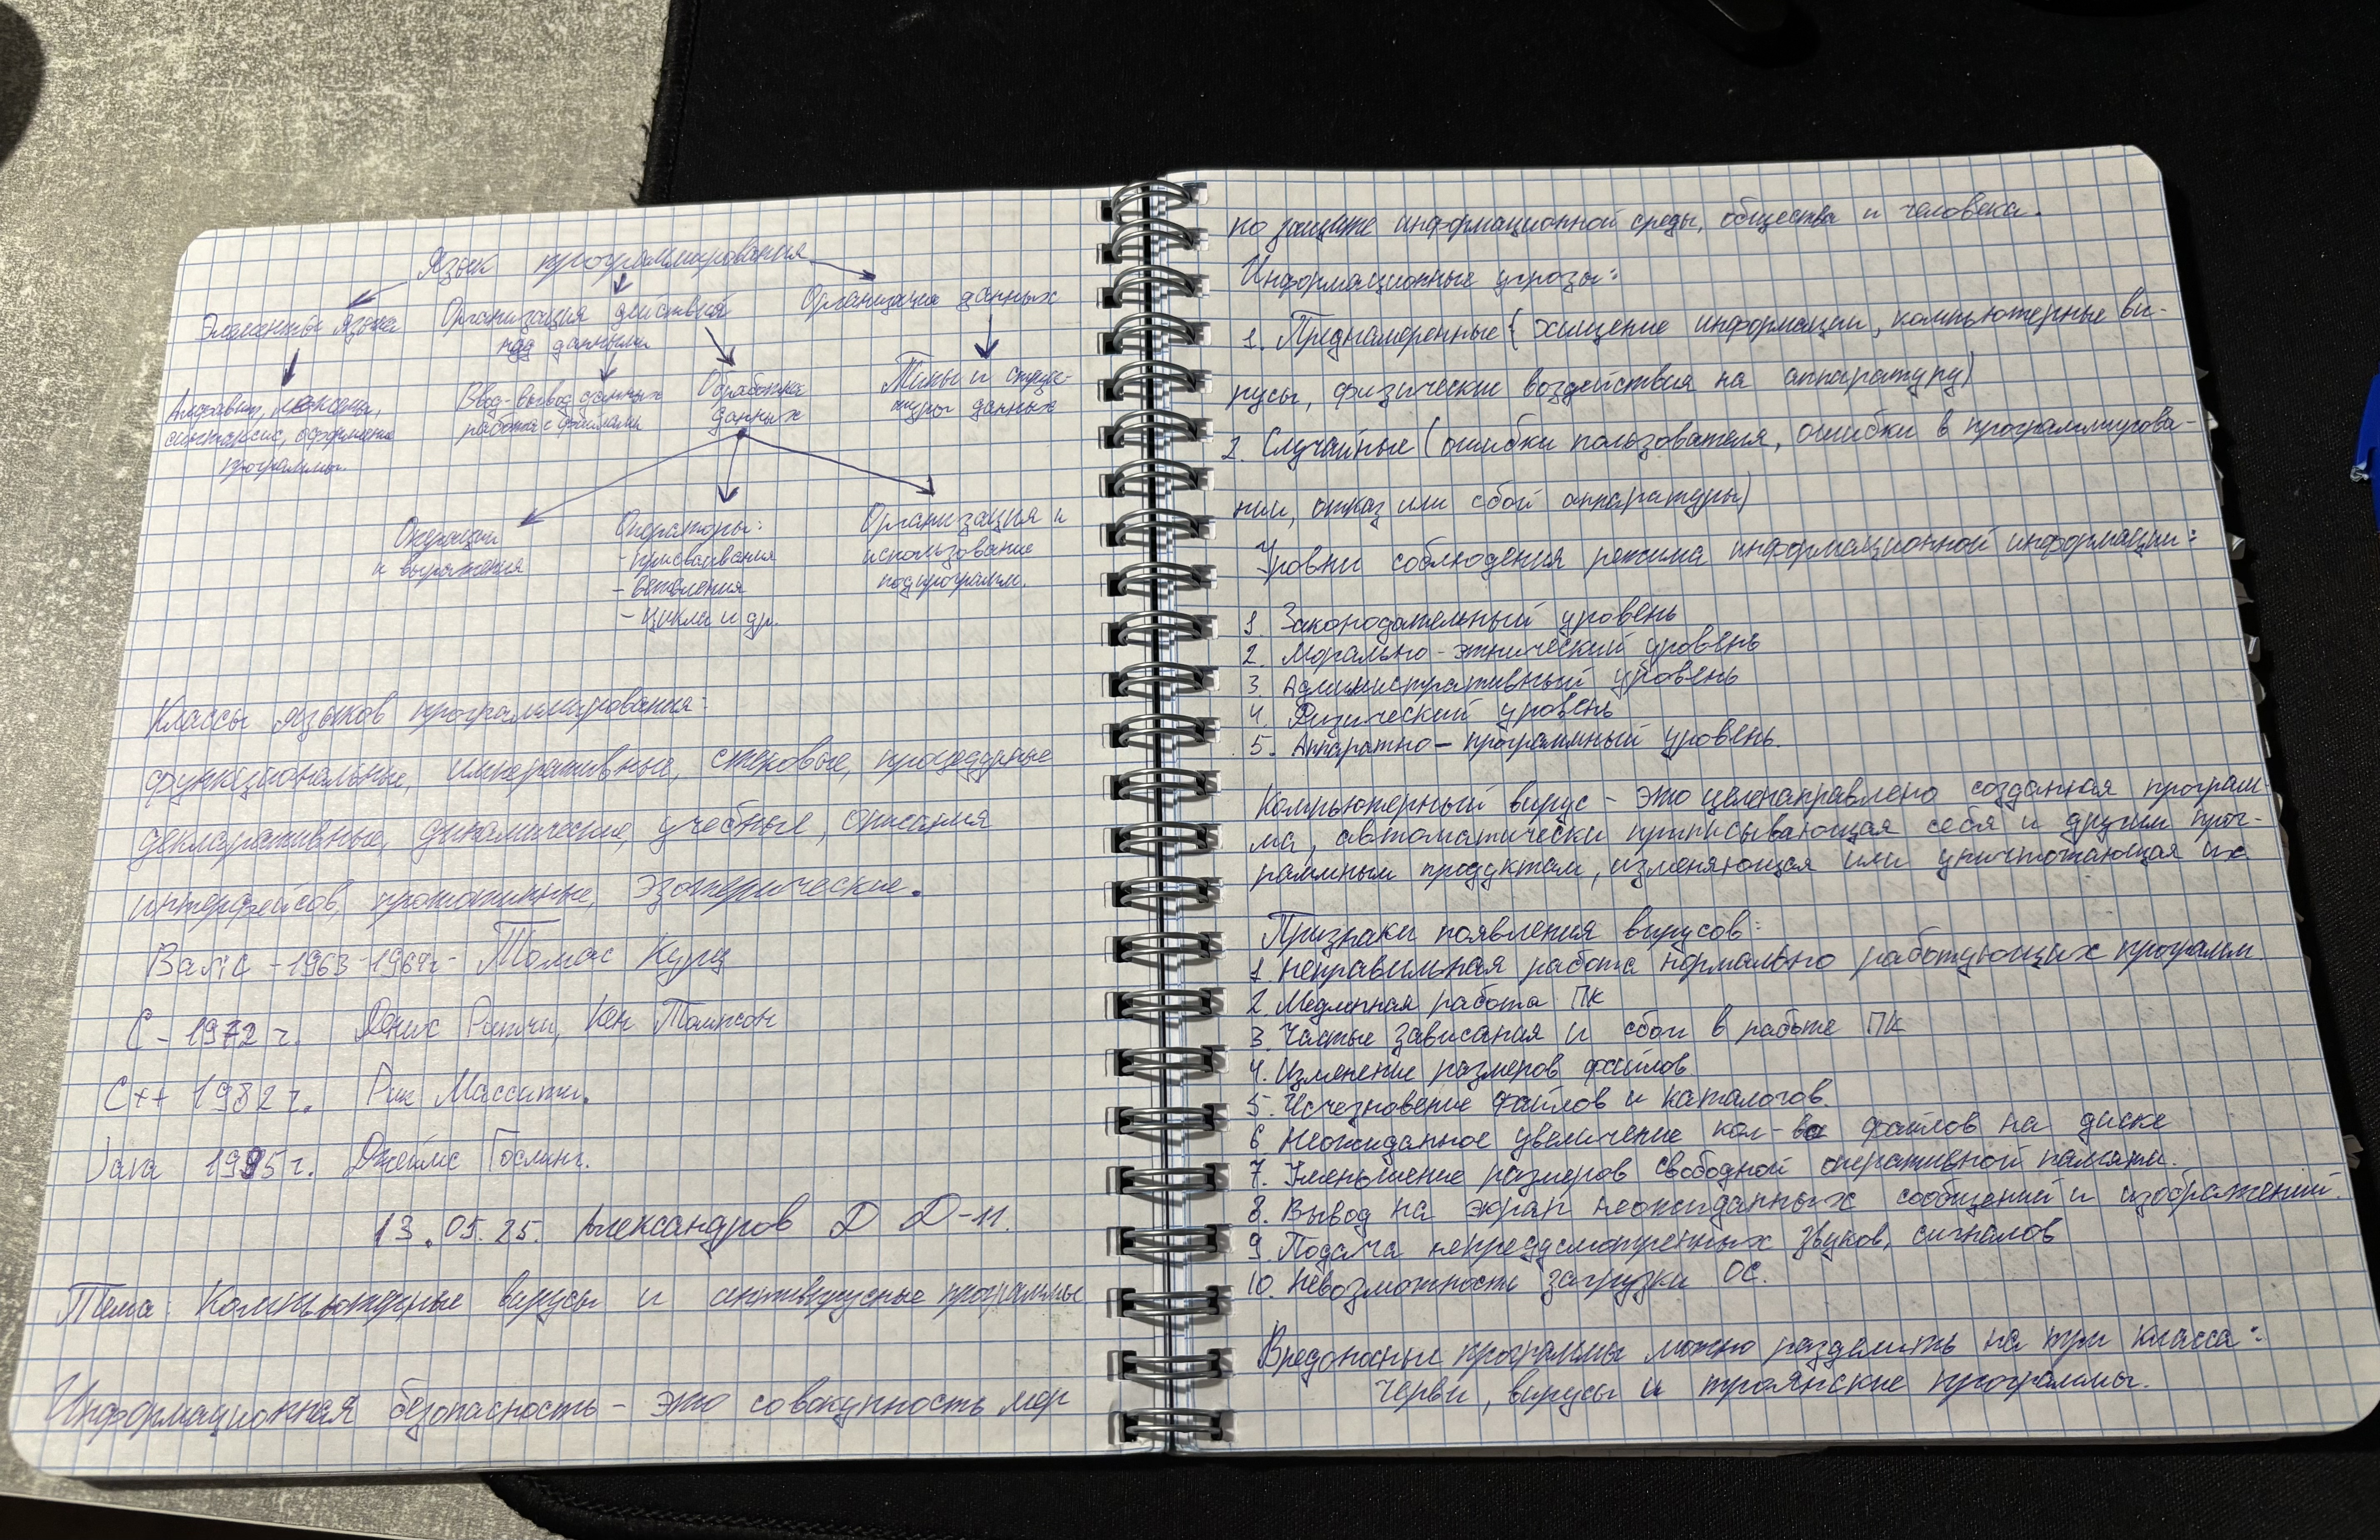 Язык программирования
Элементы языка
Организация действий
над данными
Организация данных
Алфавит, лексемы,
синтаксис, оформление
программы.
Ввод-вывод данных
работа с файлами
Обработка
данных
Типы и струк-
туры данных
Операции
и выражения
Операторы:
- присваивания
- ветвления
- цикла и др.
Организация и
использование
подпрограмм.
Классы языков программирования:
функциональные, императивные, стековые, процедурные
декларативные, динамические, учебные, описания
интерфейсов, прототипные, эзотерические.
Basic - 1963-1964г - Томас Курц
C - 1972 г. Денис Ритчи, Кен Томпсон
C++ 1982 г. Рик Массити.
Java 1995 г. Джеймс Гослинг.
13.05.25. Александров Д Д-11.
Тема: Компьютерные вирусы и антивирусные программы
Информационная безопасность - это совокупность мер
по защите информационной среды, общества и человека.
Информационные угрозы:
1. Преднамеренные (хищение информации, компьютерные ви-
русы, физические воздействия на аппаратуру)
2. Случайные (ошибки пользователя, ошибки в программирова-
нии, отказ или сбой аппаратуры)
Уровни соблюдения режима информационной информации:
1. Законодательный уровень
2. Морально-этнический уровень
3. Административный уровень
4. Физический уровень
5. Аппаратно-программный уровень.
Компьютерный вирус - это целенаправлено созданная програм-
ма, автоматически приписывающая себя и другим прог-
раммным продуктам, изменяющая или уничтожающая их
Признаки появления вирусов:
1 неправильная работа нормально работующих программ.
2 Медленная работа ПК
3. Частые зависания и сбои в работе ПК
4. Изменение размеров файлов
5. Исчезновение файлов и каталогов.
6 Неожиданное увеличение кол-во файлов на диске
7. Уменьшение размеров свободной оперативной памяти.
8. Вывод на экран неожиданных сообщений и изображений.
9. Подача непредусмотренных звуков, сигналов
10. Невозможность загрузки ОС.
Вредоносные программы можно разделить на три класса:
черви, вирусы и троянские программы.